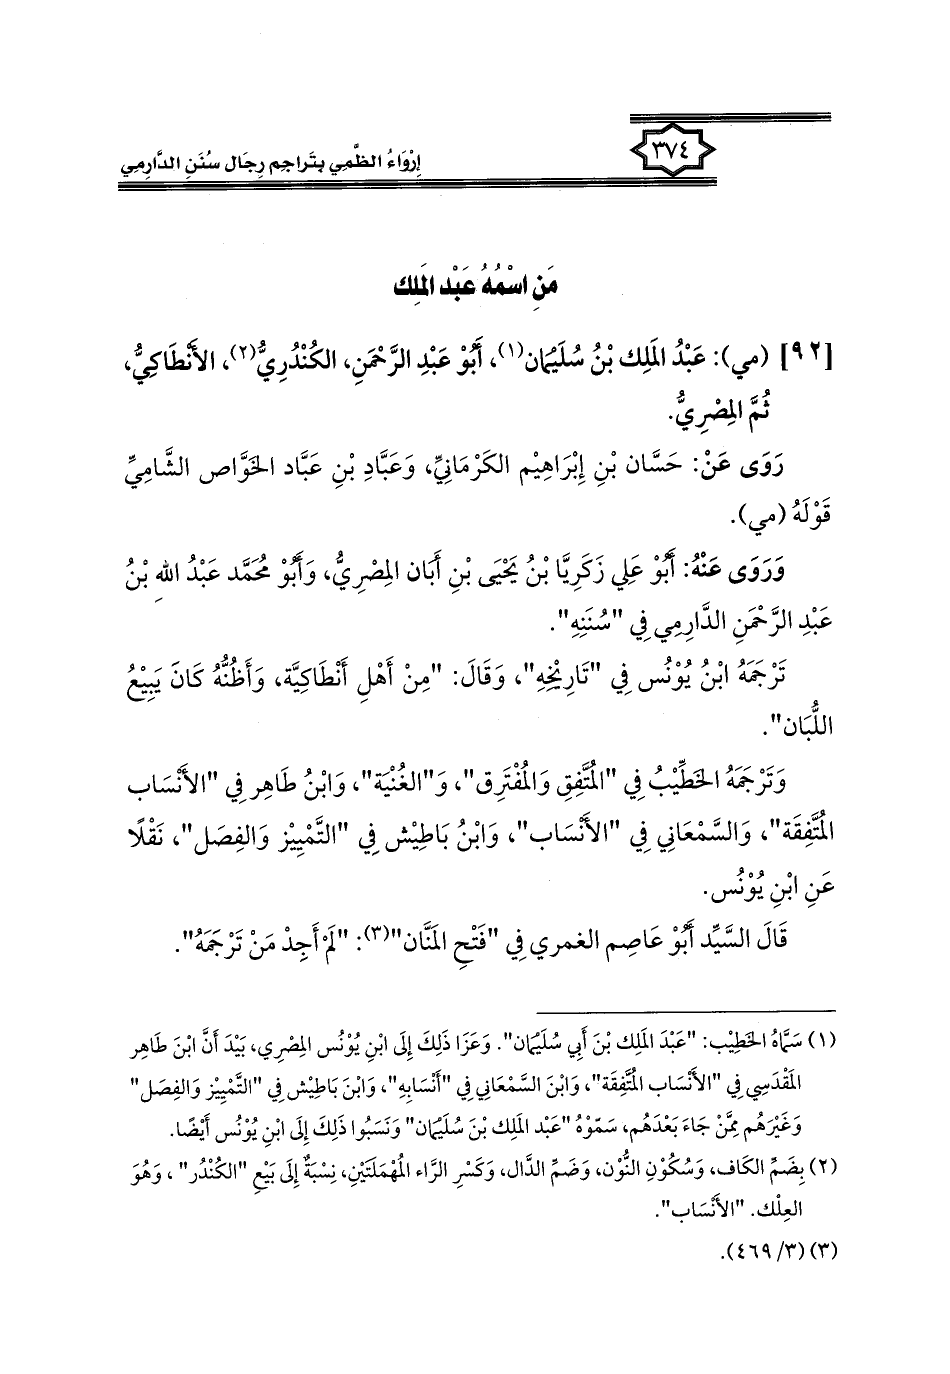 ٣٧٤
إِرْوَاءُ الظَّمِي بِتَرَاجِمِ رِجَالِ سُنَنِ الدَّارِمِي
مَنِ اسْمُهُ عَبْد المَلِك
[٩٢] (مي): عَبْدُ المَلِك بْنُ سُلَيْمَان(١)، أَبُوْ عَبْدِ الرَّحْمَنِ، الكُنْدُرِيُّ(٢)، الأَنْطَاكِيُّ،
ثُمَّ المِصْرِيُّ.
رَوَى عَنْ: حَسَّان بْنِ إِبْرَاهِيْم الكَرْمَانِيِّ، وَعَبَّادِ بْنِ عَبَّاد الخَوَّاص الشَّامِيِّ
قَوْلَهُ (مي).
وَرَوَى عَنْهُ: أَبُوْ عَلِي زَكَرِيَّا بْنُ يَحْيَى بْنِ أَبَان المِصْرِيُّ، وَأَبُوْ مُحَمَّد عَبْدُ اللهِ بْنُ
عَبْدِ الرَّحْمَنِ الدَّارِمِي فِي "سُنَنِهِ".
تَرْجَمَهُ ابْنُ يُوْنُس فِي "تَارِيْخِهِ"، وَقَالَ: "مِنْ أَهْلِ أَنْطَاكِيَّة، وَأَظُنُّهُ كَانَ يَبِيْعُ
اللُّبَان".
وَتَرْجَمَهُ الخَطِّيْبُ فِي "المُتَّفِقِ وَالمُفْتَرِق"، وَ"الغُنْيَة"، وَابْنُ طَاهِر فِي "الأَنْسَاب
المُتَّفِقَة"، وَالسَّمْعَانِي فِي "الأَنْسَاب"، وَابْنُ بَاطِيْش فِي "التَّمْيِيْز وَالفِصَل"، نَقْلًا
عَنِ ابْنِ يُوْنُس.
قَالَ السَّيِّد أَبُوْ عَاصِم الغمري فِي "فَتْحِ المَنَّان"(٣): "لَمْ أَجِدْ مَنْ تَرْجَمَهُ".
(١) سَمَّاهُ الخَطِيْب: "عَبْدَ المَلِك بْنَ أَبِي سُلَيْمَان". وَعَزَا ذَلِكَ إِلَى ابْنِ يُوْنُس المِصْرِي، بَيْدَ أَنَّ ابْنَ طَاهِر
المَقْدَسِي فِي "الأَنْسَاب المُتَّفِقَة"، وَابْنَ السَّمْعَانِي فِي "أَنْسَابِهِ"، وَابْنَ بَاطِيْش فِي "التَّمْيِيْز وَالفِصَل"
وَغَيْرَهُم مِمَّنْ جَاءَ بَعْدَهُم، سَمّوْهُ "عَبْد المَلِك بْنَ سُلَيْمَان" وَنَسَبُوا ذَلِكَ إِلَى ابْنِ يُوْنُس أَيْضًا.
(٢) بِضَمِّ الكَاف، وَسُكُوْنِ النُّوْن، وَضَمِّ الدَّال، وَكَسْرِ الرَّاء المُهْمَلَتَيْنِ، نِسْبَةٌ إِلَى بَيْعِ "الكُنْدُر" ، وَهُوَ
العِلْك. "الأَنْسَاب".
(٣) (٣/ ٤٦٩).